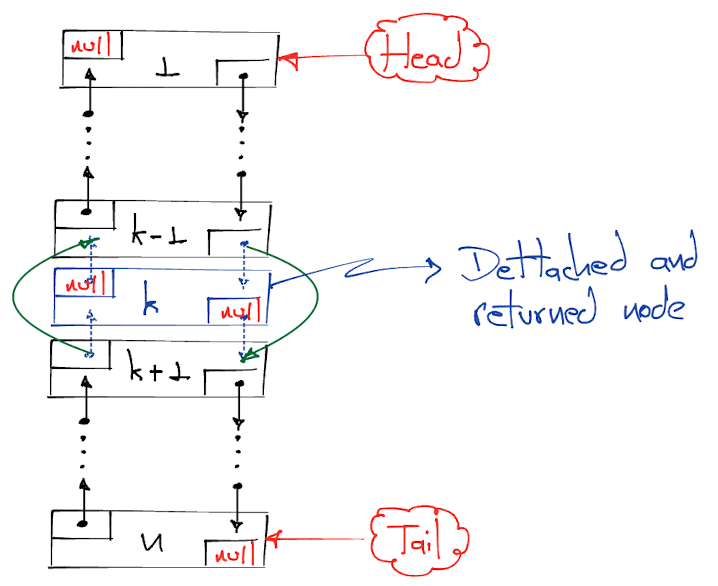 null
1
Head
k-1
null
k
null
Dettached and
returned node
k+1
n
null
Tail